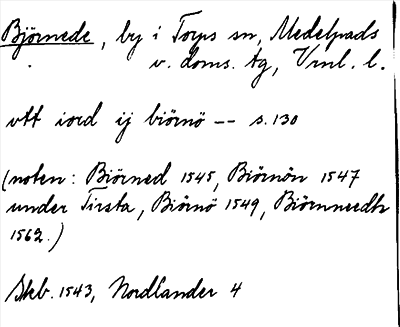 Björnede, by i Torps sn, Medelpads
v. doms. tg, Vnl. l.
ott iord ij biörnö -- s. 130
(noten: Biörned 1545, Biörnön 1547
under Tirsta, Biörnö 1549, Biörnneedh
1562.)
Skb. 1543, Nordlander 4